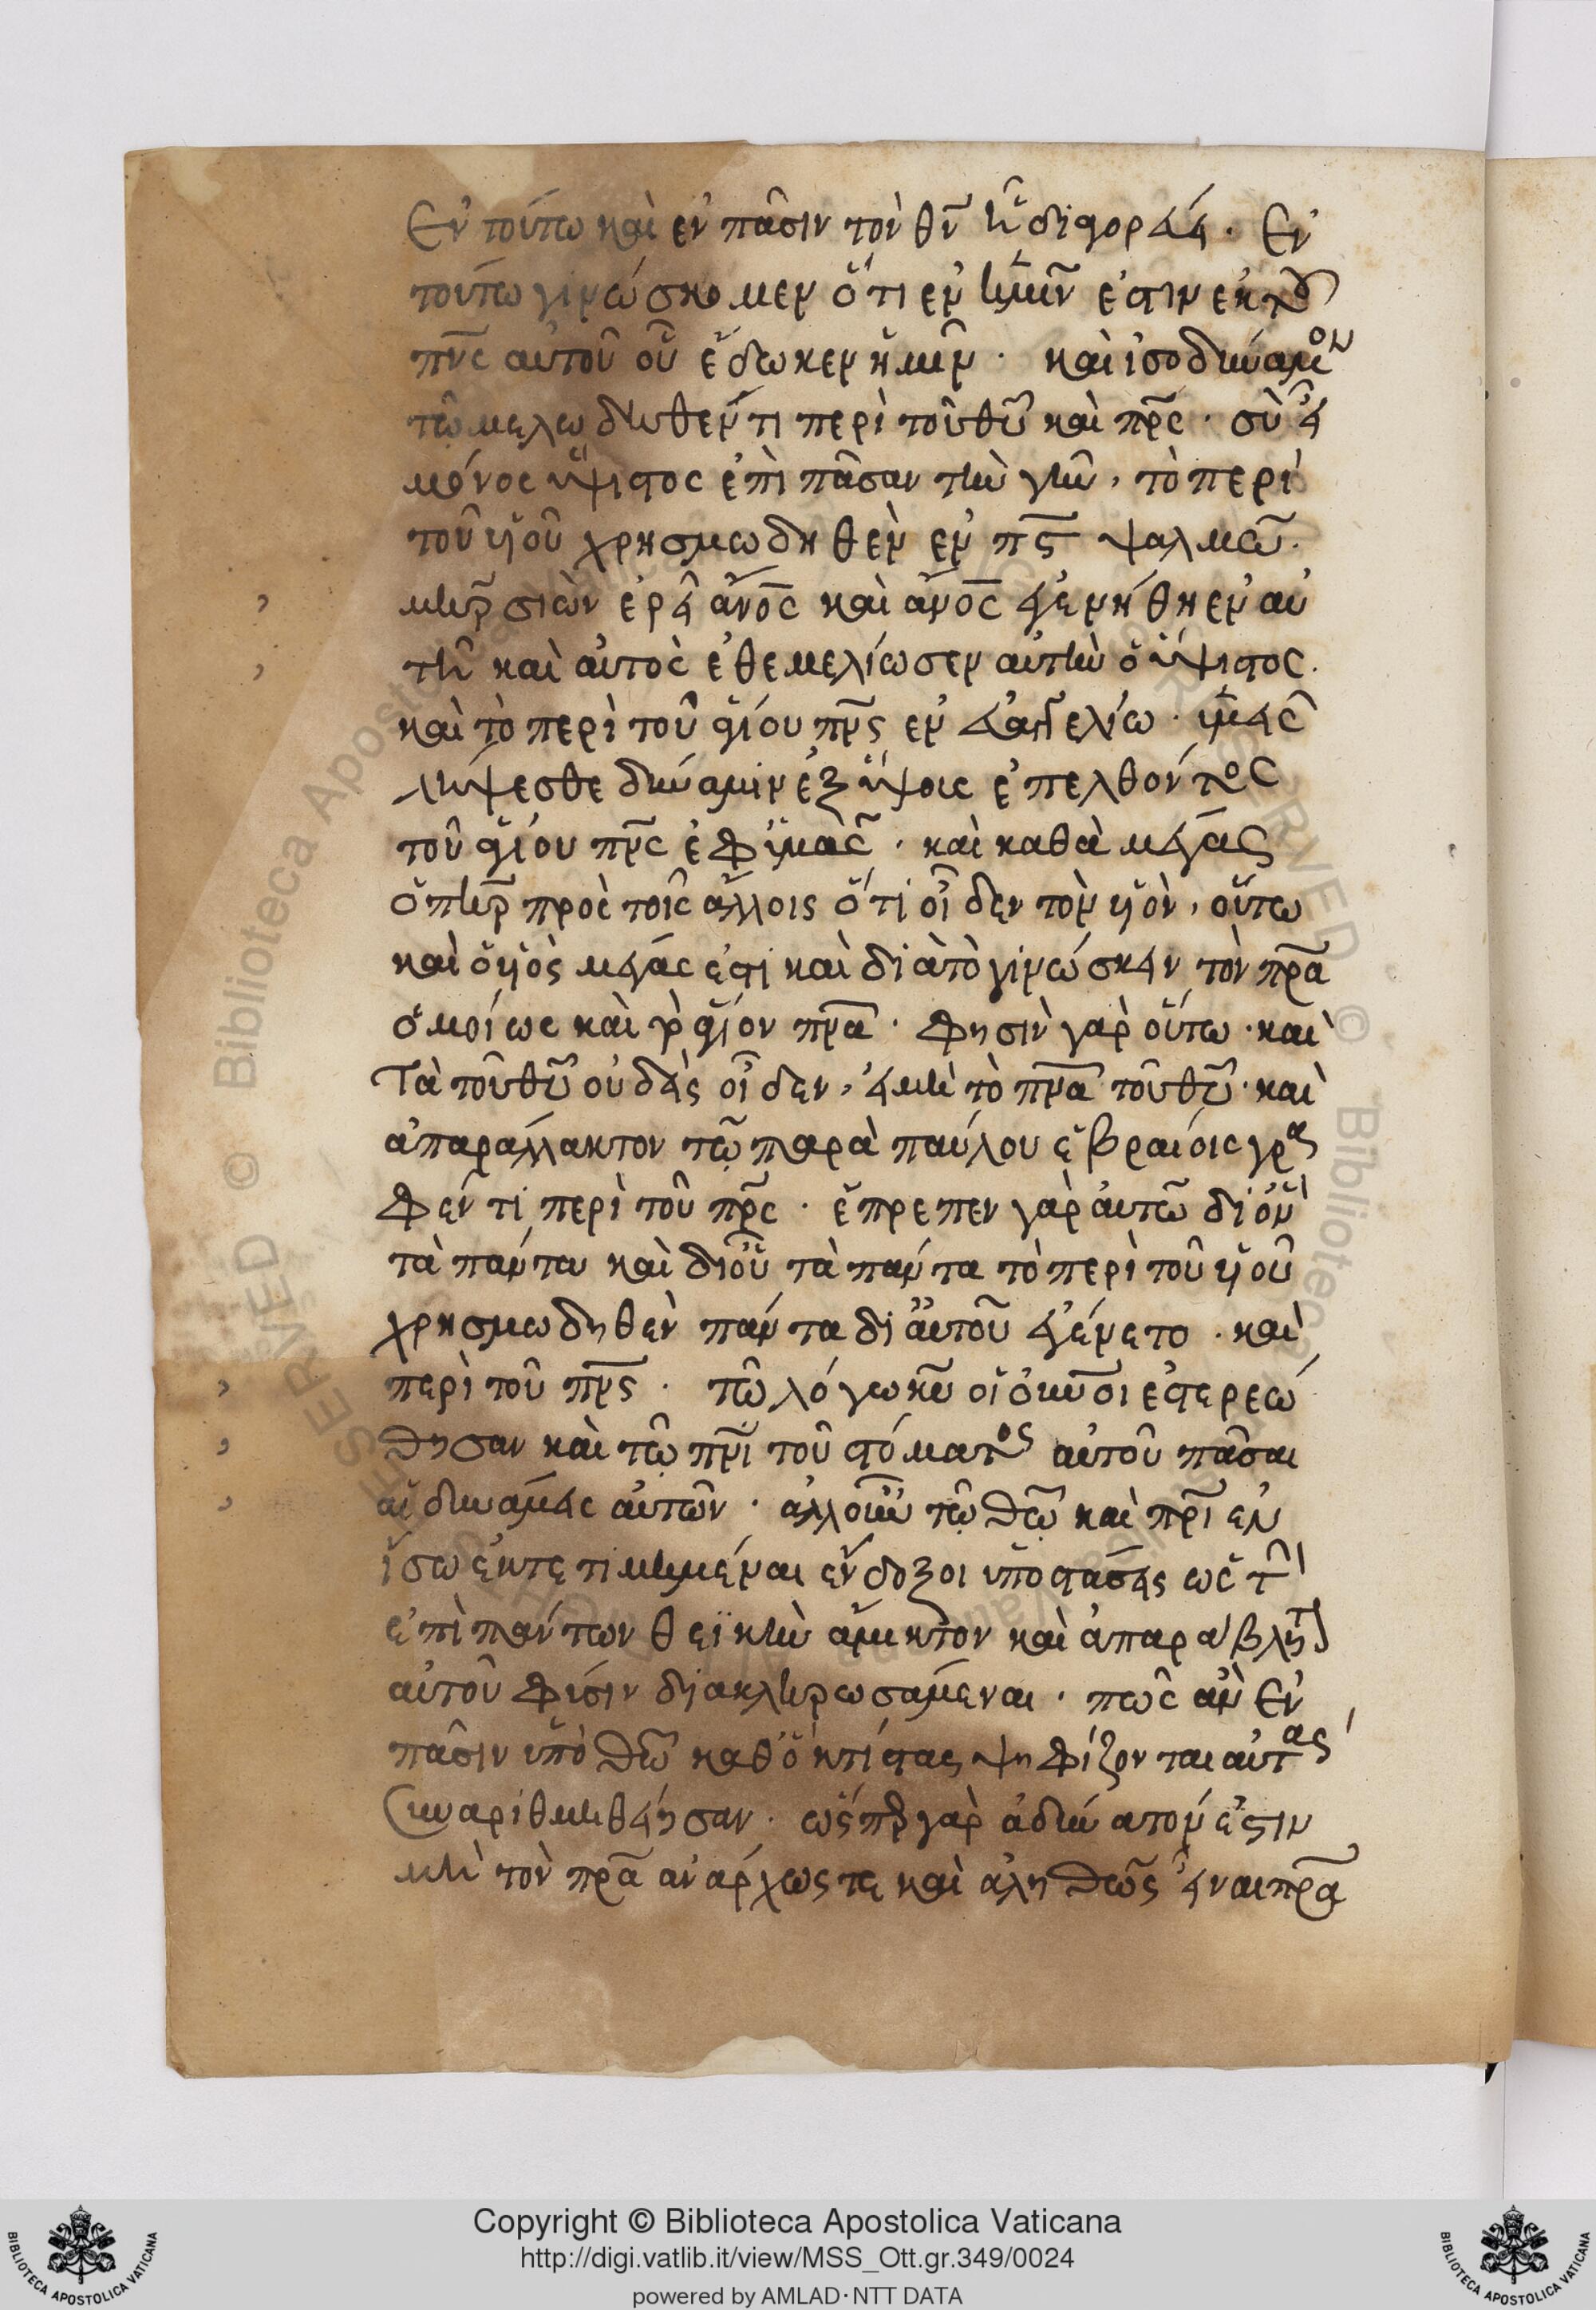 Ἐν τούτω καὶ ἐν πᾶσιν τὸν θν ἡ διφορὰ εἴη. Ἐν
τούτω γινώσκομεν ὅτι ἐν ἡμῖν ἐστιν ἐκ τοῦ
πνς αὐτοῦ οὗ ἔδωκεν ἡμῖν. καὶ ἰσοδύναμον
τῶ μελωδηθέντι περὶ τοῦ θυ καὶ πρς. σὺ εἶ
μόνος ὕψιστος ἐπὶ πᾶσαν τὴν γῆν, τὸ περὶ
τοῦ υἱοῦ χρησμωδηθὲν ἐν πς ψαλμῶ.
μηρ σιὼν ἐρεῖ ἀνος καὶ ἀνος ἐγενήθη ἐν αὐ
τῆ καὶ αὐτὸς ἐθεμελίωσεν αὐτὴν ὁ ὕψιστος.
καὶ τὸ περὶ τοῦ ἁγίου πνς ἐν εὐαγγελίω. ὑμεῖς
λήψεσθε δύναμιν ἐξ ὕψοις ἐπελθόντος
τοῦ ἁγίου πνς ἐφ ὑμᾶς. καὶ καθὰ μέγας
ὁ πηρ πρὸς τοῖς ἄλλοις ὅτι οἶδεν τὸν υἱὸν, οὕτω
καὶ ὁ υἱὸς μέγας ἐστὶ καὶ διὰ τὸ γινώσκειν τὸν πρα
ὁμοίως καὶ τὸ ἅγιον πνα. φησὶν γὰρ οὕτω. καὶ
Τὰ τοῦ θυ οὐδεὶς οἶδεν, εἰ μὴ τὸ πνα τοῦ θυ. καὶ
ἀπαράλλακτον τῶ παρὰ παύλου ἑβραίοις γρα
φέντι περὶ τοῦ πρς. ἔπρεπεν γὰρ αὐτῶ δι ὃν
τὰ πάντα καὶ δι οὗ τὰ πάντα τὸ περὶ τοῦ υἱοῦ
χρησμωδηθὲν πάντα δι αὐτοῦ ἐγένετο. καὶ
περὶ τοῦ πνς. τῶ λόγω κυ οἱ οὐνοι ἐστερεώ
θησαν καὶ τῶ πνι τοῦ στόματος αὐτοῦ πᾶσαι
αἱ δυνάμεις αὐτῶν. ἀλλ οὖν τῶ θω καὶ πρι ἐν
ἴσω ἐκτετιμημέναι ἔνδοξοι ὑποστάσεις ὡς τὴν
ἐπὶ πάντων θεϊκὴν ἄμικτον καὶ ἀπαράβλητον
αὐτοῦ φύσιν διακληρωσάμεναι. πῶς ἂν Ἐν
πᾶσιν ὑπὸ θν καθ ὃ κτίστας ψηφίζονται αὐτὰς
συναριθμηθείησαν. ὥσπερ γὰρ ἀδύνατον ἐστιν
μὴ τὸν πρα ἀνάρχως τε καὶ ἀληθῶς εἶναι πρα